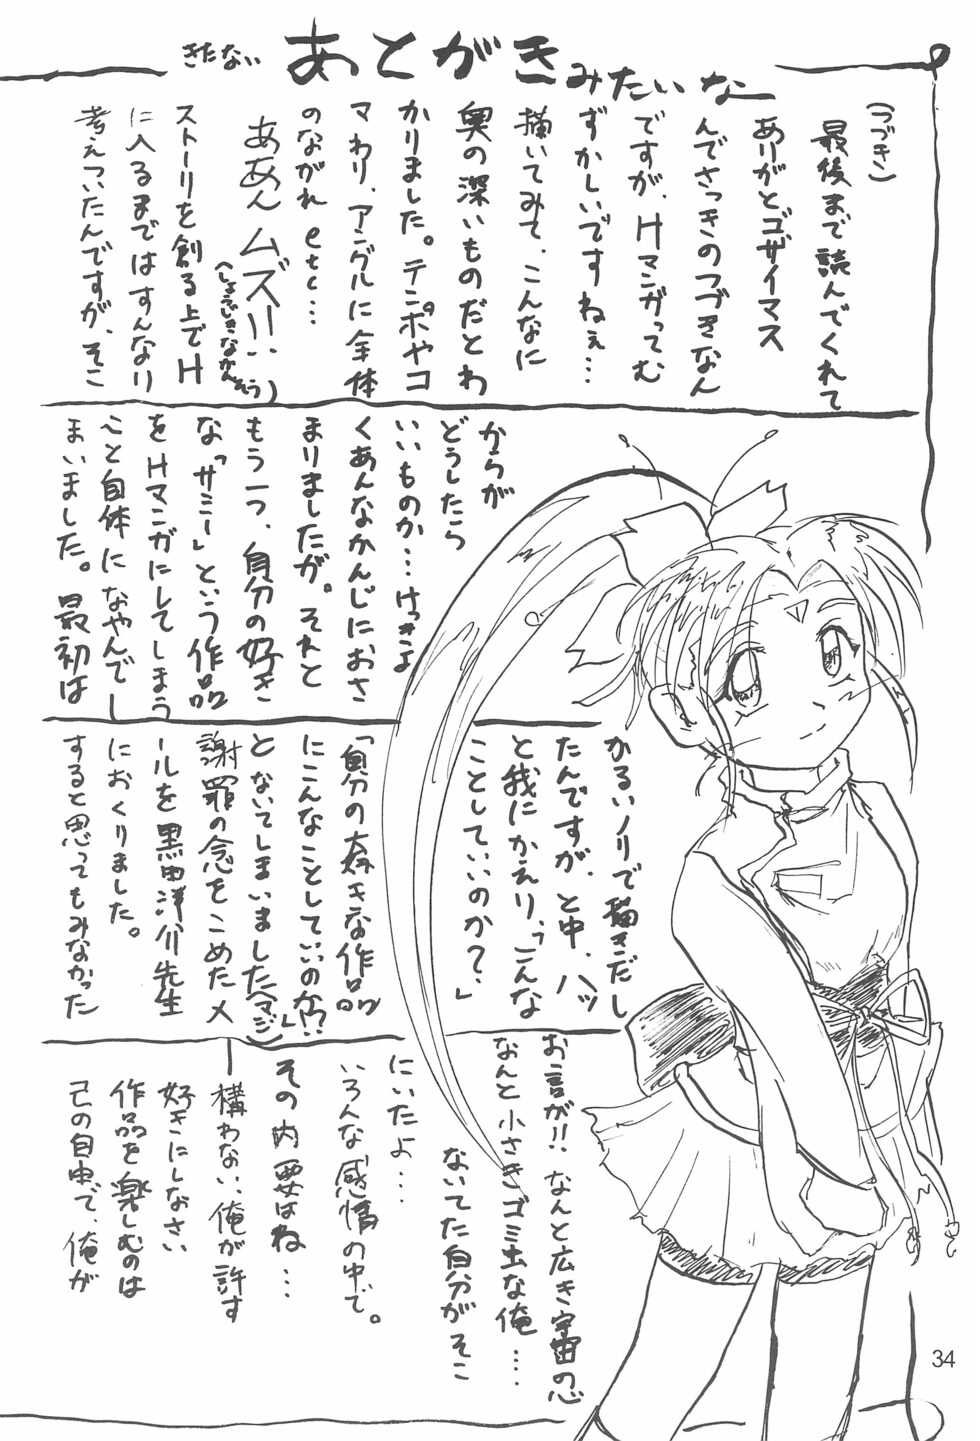 きたない あとがき みたいな
(つづき)
最後まで読んでくれて
ありがとゴザイマス
んでさっきのつづきなん
ですが、Hマンガってむ
ずかしいですねぇ…
描いてみて、こんなに
奥の深いものだとわ
かりました。テンポやコ
マわり、アングルに全体
のながれetc…
ああん ムズーい
(しょうじきなかんそう)
ストーリを創る上でH
に入るまではすんなり
考えついたんですが、そこ
からが
どうしたら
いいものか…けっきょ
くあんなかんじにおさ
まりましたが。それと
もう一つ、自分の好き
な「サミー」という作品
をHマンガにしてしまう
こと自体になやんでし
まいました。最初は
かるいノリで描きだし
たんですが、と中、ハッ
と我にかえり、「こんな
ことしていいのか?」
「自分の大好きな作品
にこんなことしていいのか!?」
とないてしまいました(マジ)
謝罪の念をこめたメ
ールを黒田洋介先生
におくりました。
すると思ってもみなかった
お言が!!なんと広き宇宙の心
なんと小さきゴミ虫な俺…
ないてた自分がそこ
にいたよ…
いろんな感情の中で。
その内要はね…
構わない、俺が許す
好きにしなさい
作品を楽しむのは
己の自由で、俺が
34